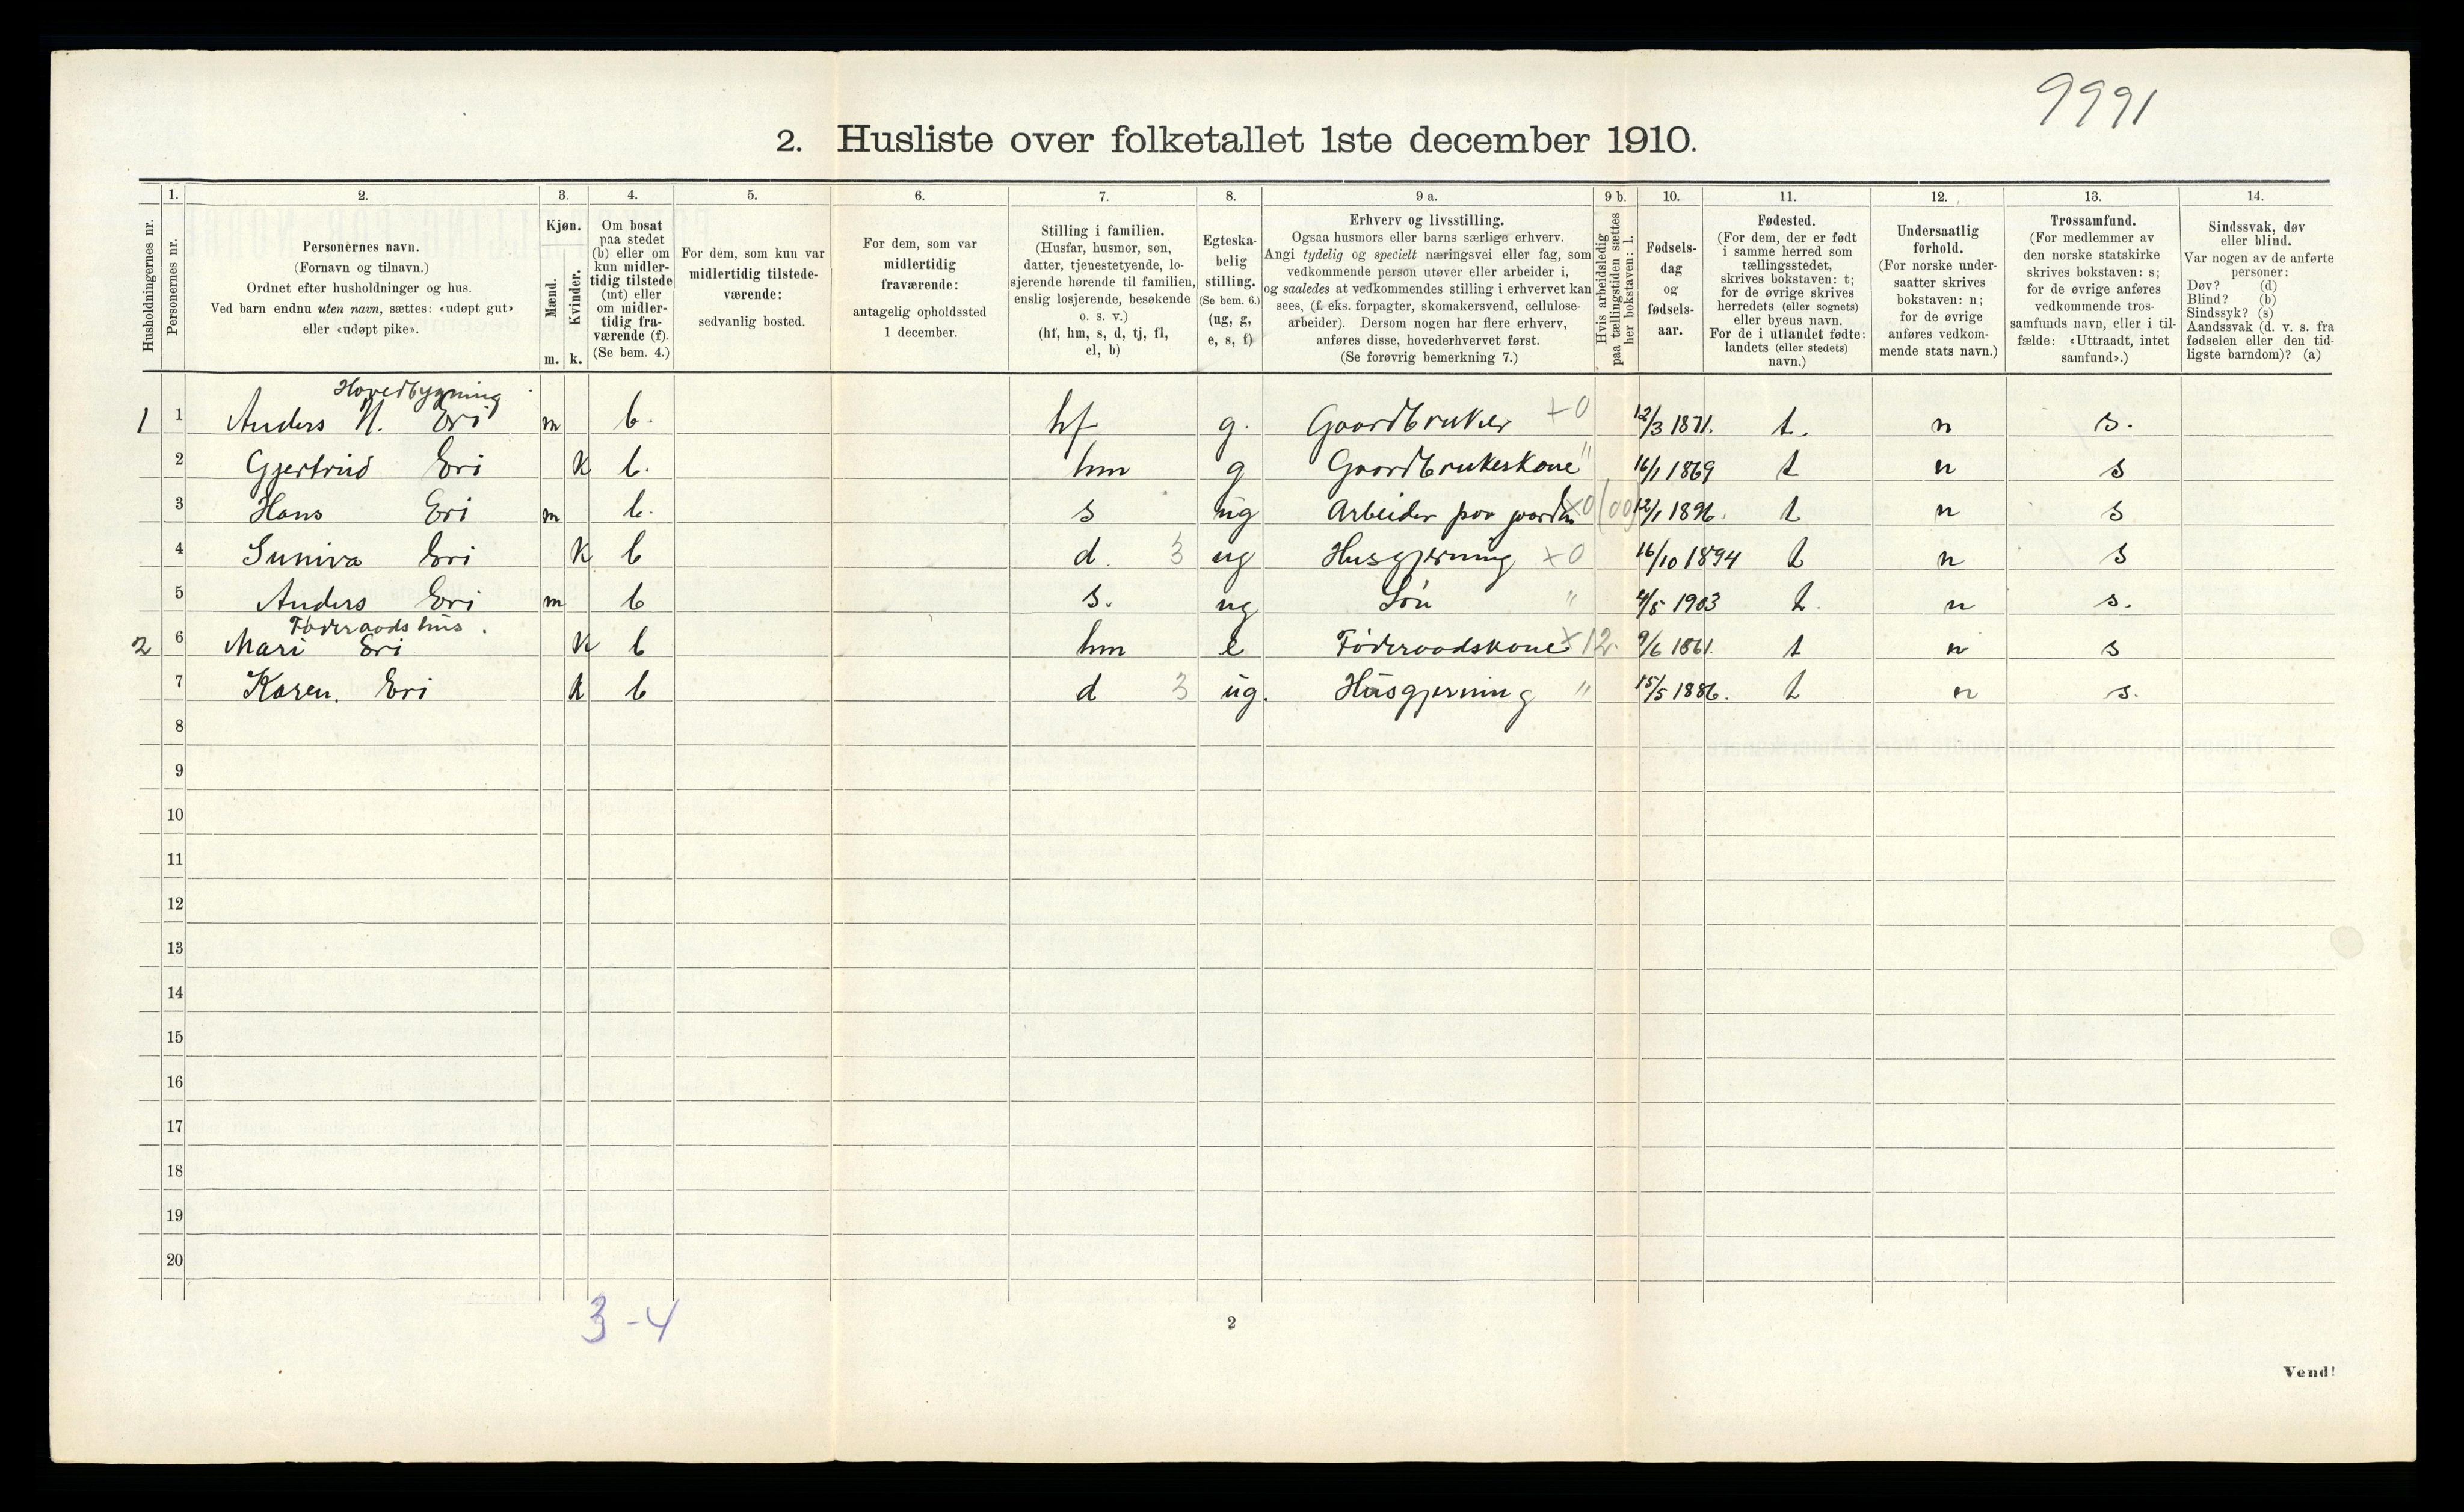 9991
2. Husliste over folketallet 1ste december 1910.
Husholdningernes nr.
1.
Personernes nr.
2.
Personernes navn.
(Fornavn og tilnavn.)
Ordnet efter husholdninger og hus.
Ved barn endnu uten navn, sættes: «udøpt gut»
eller «udøpt pike».
3.
Kjøn.
Mænd.
m.
Kvinder.
k.
4.
Om bosat
paa stedet
(b) eller om
kun midler-
tidig tilstede
(mt) eller
om midler-
tidig fra-
værende (f).
(Se bem. 4.)
5.
For dem, som kun var
midlertidig tilstede-
værende:
sedvanlig bosted.
6.
For dem, som var
midlertidig
fraværende:
antagelig opholdssted
1 december.
7.
Stilling i familien.
(Husfar, husmor, søn,
datter, tjenestetyende, lo-
sjerende hørende til familien,
enslig losjerende, besøkende
o. s. v.)
(hf, hm, s, d, tj, fl,
el, b)
8.
Egteska-
belig
stilling.
(Se bem. 6.)
(ug, g,
e, s, f)
9 a.
Erhverv og livsstilling.
Ogsaa husmors eller barns særlige erhverv.
Angi tydelig og specielt næringsvei eller fag, som
vedkommende person utøver eller arbeider i,
og saaledes at vedkommendes stilling i erhvervet kan
sees, (f. eks. forpagter, skomakersvend, cellulose-
arbeider). Dersom nogen har flere erhverv,
anføres disse, hovederhvervet først.
(Se forøvrig bemerkning 7.)
9 b.
Hvis arbeidsledig
paa tællingstiden sættes
her bokstaven: l.
10.
Fødsels-
dag
og
fødsels-
aar.
11.
Fødested.
(For dem, der er født
i samme herred som
tællingsstedet,
skrives bokstaven: t;
for de øvrige skrives
herredets (eller sognets)
eller byens navn.
For de i utlandet fødte:
landets (eller stedets)
navn.)
12.
Undersaatlig
forhold.
(For norske under-
saatter skrives
bokstaven: n;
for de øvrige
anføres vedkom-
mende stats navn.)
13.
Trossamfund.
(For medlemmer av
den norske statskirke
skrives bokstaven: s;
for de øvrige anføres
vedkommende tros-
samfunds navn, eller i til-
fælde: «Uttraadt, intet
samfund».)
14.
Sindssvak, døv
eller blind.
Var nogen av de anførte
personer:
Døv? (d)
Blind? (b)
Sindssyk? (s)
Aandssvak (d. v. s. fra
fødselen eller den tid-
ligste barndom)? (a)
Hovedbygning
1 1 Anders N. Eri m b. hf g. Gaardbruker +0 12/3 1871. t. n s.
2 Gjertrud Eri K b. hm g Gaardbrukerskone " 16/1 1869 t n s
3 Hans Eri m b. s ug Arbeider paa gaarden x0 (00) 12/1 1896. t n s
4 Suniva Eri K b d. 3 ug Husgjerning x0 16/10 1894 t n s
5 Anders Eri m b s. ug Søn " 4/5 1903 t. n s.
Føderaadshus.
2 6 Mari Eri K b hm e Føderaadskone x12. 9/6 1861. t n s
7 Karen. Eri k b d 3 ug. Husgjerning " 15/5 1886. t n s.
8
9
10
11
12
13
14
15
16
17
18
19
20
3-4
2
Vend!